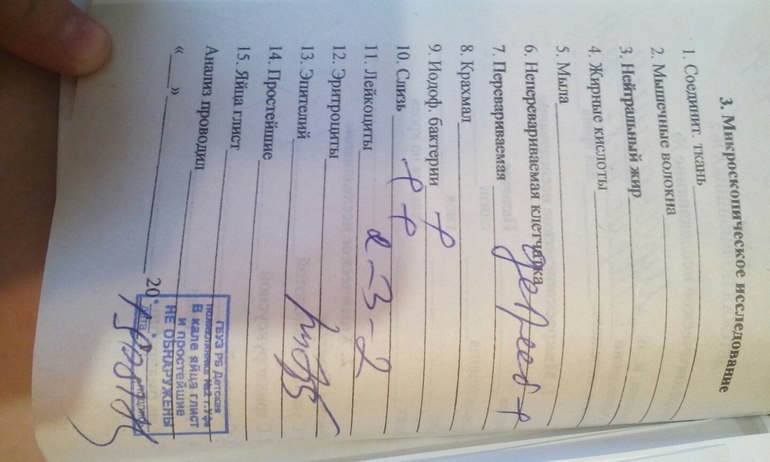 3. Микроскопическое исследование
1. Соединит. ткань
2. Мышечные волокна
3. Нейтральный жир
4. Жирные кислоты
5. Мыла
6. Непереваримаемая клетчатка
7. Перевариваемая
8. Крахмал
9. Иодоф. бактерии +
10. Слизь ++
11. Лейкоциты 2-3-2
12. Эритроциты
13. Эпителий
14. Простейшие
15. Яйца глист
Анализ проводил
«___» 20
ГБУЗ РБ Детская
поликлиника №2 г.Уфа
В кале яйца глист
и простейшие
НЕ ОБНАРУЖЕНЫ
Дата